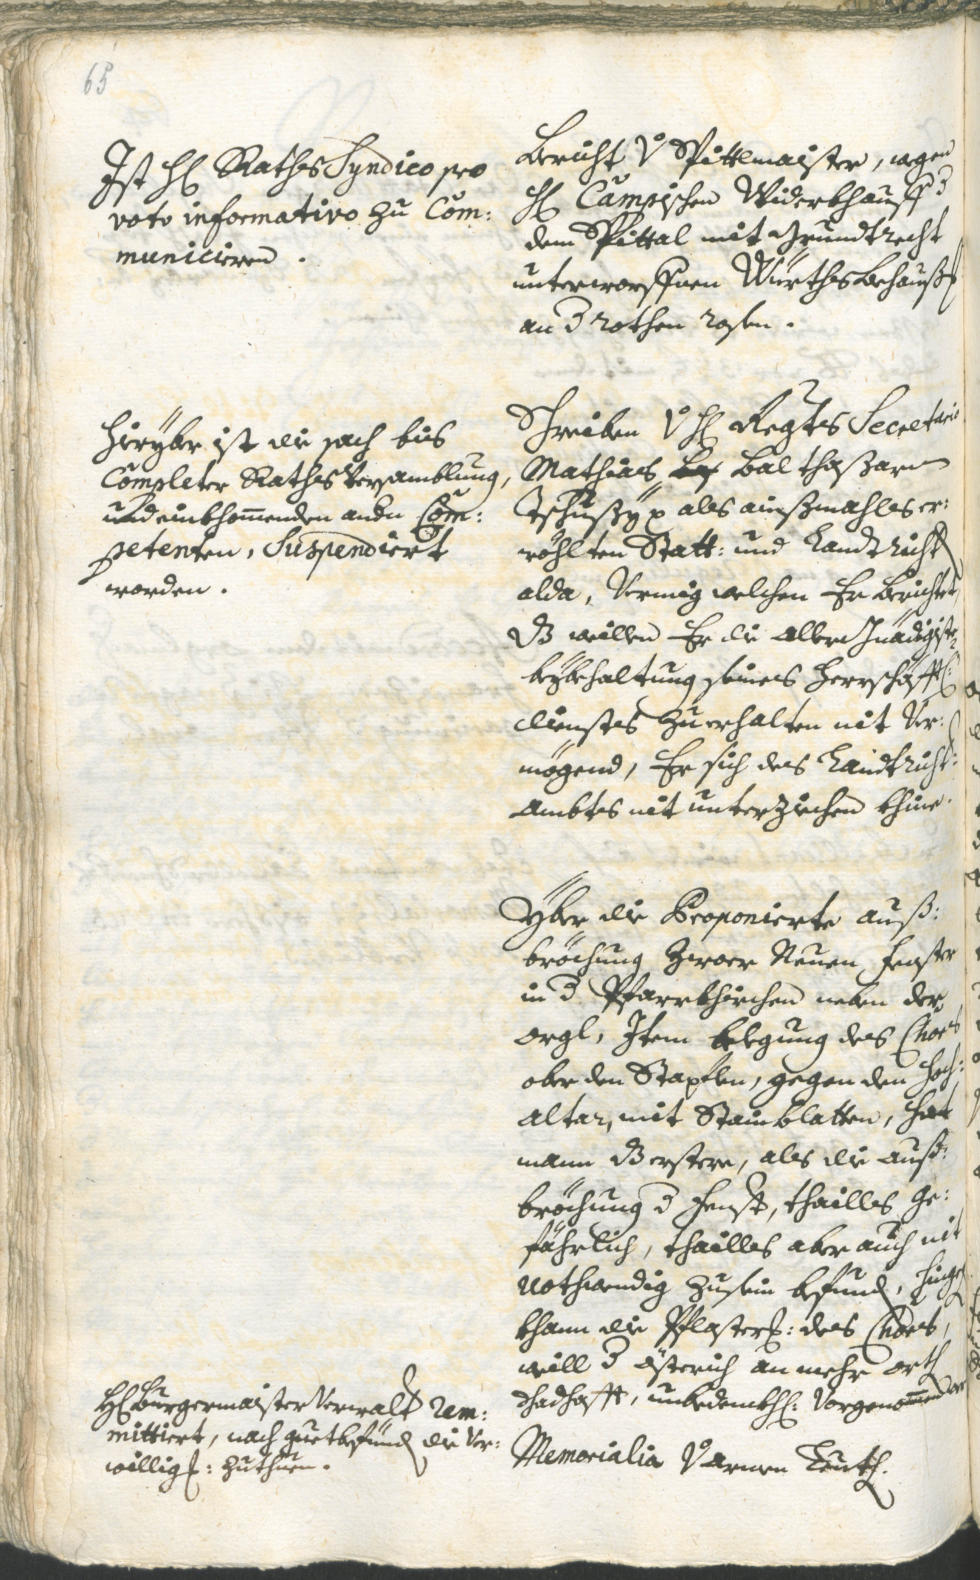 65
Ist H: Raths Syndico pro
voto informativo zu Com:
municieren.
Bericht v Spittlmaister, wegen
H: Campischen Widerkhauff d
dem Spittal mit Grundtrecht
unterworffnen Würthsbehauß:
an d rothen rosen.
Hierüber ist die sach bis
Completer Raths Versamblung,
und einkhommenden andn Com:
petenten, Suspendiert
worden.
Schreiben v H: Regts Secretario
Mathias Balthaßarn
Tschußÿ als
röhlten Statt: und Landtricht:
alda, Vermög welchen Er Berichtet
dß willen Er die allergnädigiste
beÿbehaltung seines Herrschafft:
dienstes zuerhalten nit Ver:
mögend, Er sich des Landtricht:
Ambtes nit unterziehen khine.
Yber die Proponierte auß:
bröchung Zweer Neuen fenster
in d Pfarrkhirchen neben der
orgl, Item belegung des Chors
ober den Stapflen, gegen den Hoch:
altar, mit Stainblatten, hat
mann dß erstere, als die auß:
bröchung d fenst, thailles ge:
fährlich, thailles aber auch nit
nothwendig zusein befund:, hing:
khann die Pflaster: des Chors,
weill d Esterich an mehr orth
schadhafft, unbedenkh: Vorgenommen
H: Burgermaister Verwalt: rem:
mittiert, nach guetbefund: die Ver:
willig: zuthuen.
Memorialia v armen Leuth: